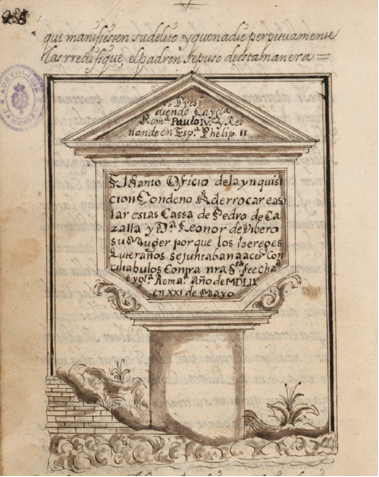 que manifiesten su delito y que nadie perpetuamente
las rredifique, el padron se puso de esta manera =
Presi
diendo La Ygle.
Rom.ª Paulo IV. Y Rei
nando en Esp.ª Phelip. II
El Santo Oficio de la ynquisi
cion Condeno A derrocar e aso
lar estas Cassa de Pedro de Ca
zalla y D.ª Leonor de Vibero
su Muger porque los hereges
Luteranos se juntaban a acer Con
ciliabulos Contra nra S.ta fee cha.ª
e ygl.ª Roma.ª Año de MDLIX
en XXI de Mayo